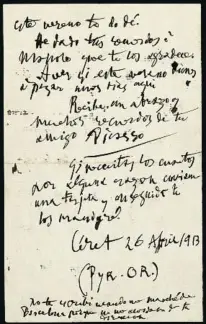 este verano te lo dé.
He dado tus recuerdos a
Manolo que te los agradece.
A ver si este verano vienes
a pasar unos dias aqui
Recibe un abrazo y
muchos recuerdos de tu
amigo Picasso
Si necesitas los cuartos
por alguna razon enviam
una tarjeta y enseguida te
los mandaré?
Céret 26 Avril 1913
(Pyr. OR.)
no te escribi cuando me marché de
Barcelona porque no me acordaba